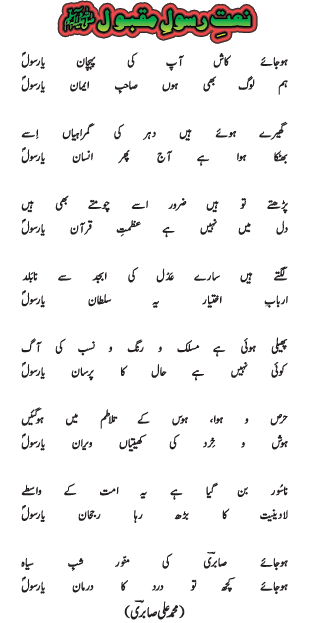 نعتِ رسولِ مقبول ﷺ
ہوجائے کاش آپ کی پہچان یارسولؐ
ہم لوگ بھی ہوں صاحبِ ایمان یارسولؐ
گھیرے ہوئے ہیں دہر کی گمراہیاں اِسے
بھٹکا ہوا ہے آج پھر انسان یارسولؐ
پڑھتے تو ہیں ضرور اسے چومتے بھی ہیں
دل میں نہیں ہے عظمتِ قرآن یارسولؐ
لگتے ہیں سارے عدَل کی ابجد سے نابلد
اربابِ اختیار یہ سلطان یارسولؐ
پھیلی ہوئی ہے مسلک و رنگ و نسب کی آگ
کوئی نہیں ہے حال کا پرسان یارسولؐ
حرص و ہوا، ہوس کے تلاطم میں ہوگئیں
ہوش و خِرد کی کھیتیاں ویران یارسولؐ
ناسُور بن گیا ہے یہ امت کے واسطے
لادینیت کا بڑھ رہا رجحان یارسولؐ
ہوجائے صابریؔ کی منّور شبِ سیاہ
ہوجائے کچھ تو درد کا درمان یارسولؐ
(محمد علی صابریؔ)